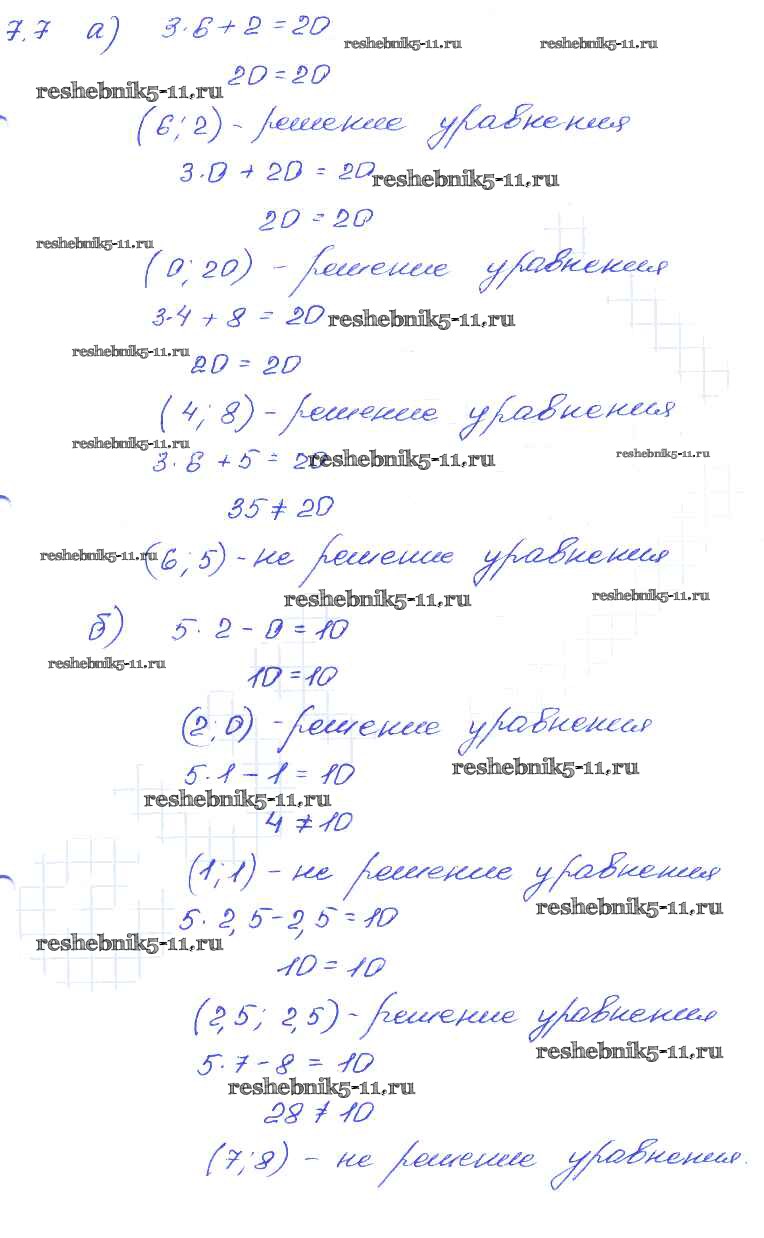 7.7 а) 3·6+2=20
reshebnik5-11.ru reshebnik5-11.ru
20=20
reshebnik5-11.ru
(6; 2) - решение уравнения
3·0 + 20 = 20
reshebnik5-11.ru
20 = 20
reshebnik5-11.ru
(0; 20) - решение уравнения
3·4 + 8 = 20
reshebnik5-11.ru
reshebnik5-11.ru
20 = 20
(4; 8) - решение уравнения
reshebnik5-11.ru
3·6 + 5 = 20
reshebnik5-11.ru reshebnik5-11.ru
35 ≠ 20
reshebnik5-11.ru
(6; 5) - не решение уравнения
reshebnik5-11.ru reshebnik5-11.ru
б) 5·2 - 0 = 10
reshebnik5-11.ru
10 = 10
(2; 0) - решение уравнения
5·1 - 1 = 10
reshebnik5-11.ru
reshebnik5-11.ru
4 ≠ 10
(1; 1) - не решение уравнения
5·2,5 - 2,5 = 10
reshebnik5-11.ru
reshebnik5-11.ru
10 = 10
(2,5; 2,5) - решение уравнения
5·7 - 8 = 10
reshebnik5-11.ru
reshebnik5-11.ru
28 ≠ 10
(7; 8) - не решение уравнения.